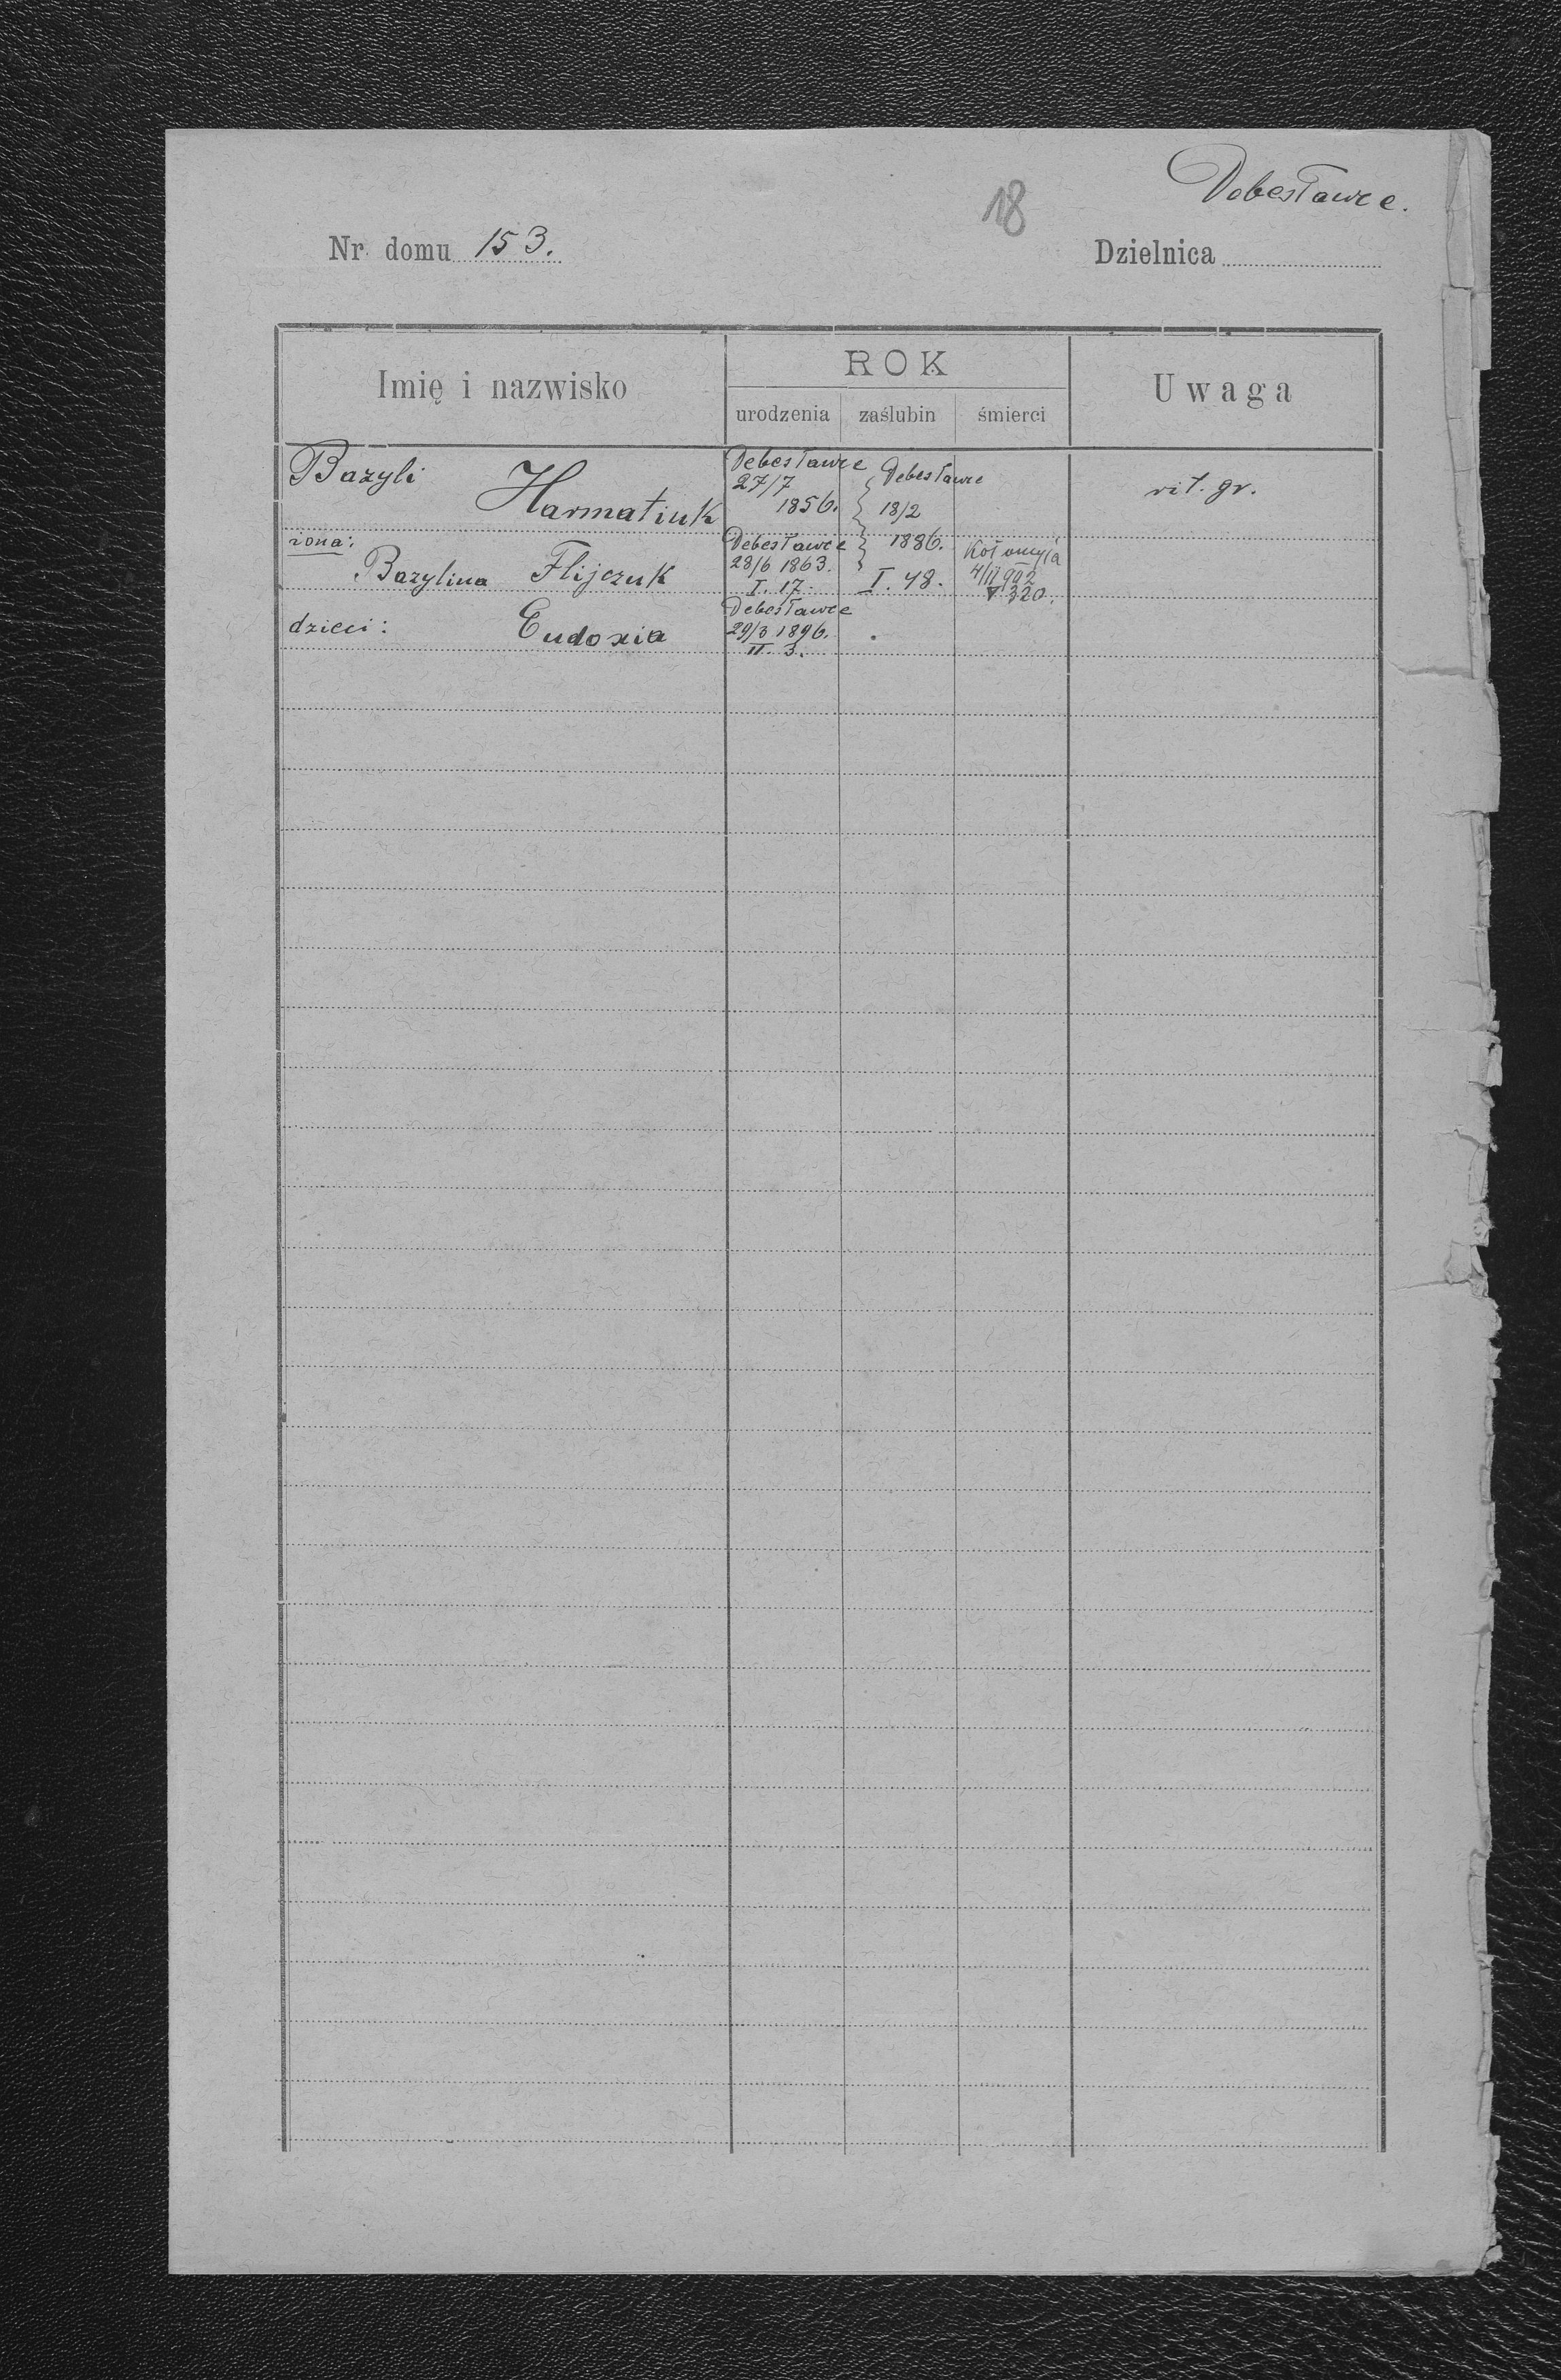 18
Debesławce.
Nr domu 153.
Dzielnica
Imię i nazwisko
ROK
urodzenia zaślubin śmierci
Uwaga
Bazyli Harmatiuk
Debesławce
27/7
1856.
Debesławce
18/2
1886.
I. 48.
rit. gr.
żona:
Bazylina Flijczuk
Debesławce
28/6 1863.
I. 17.
Kołomyja
4/II 902
V 320.
dzieci: Eudoxia
Debesławce
29/3 1896.
II. 3.